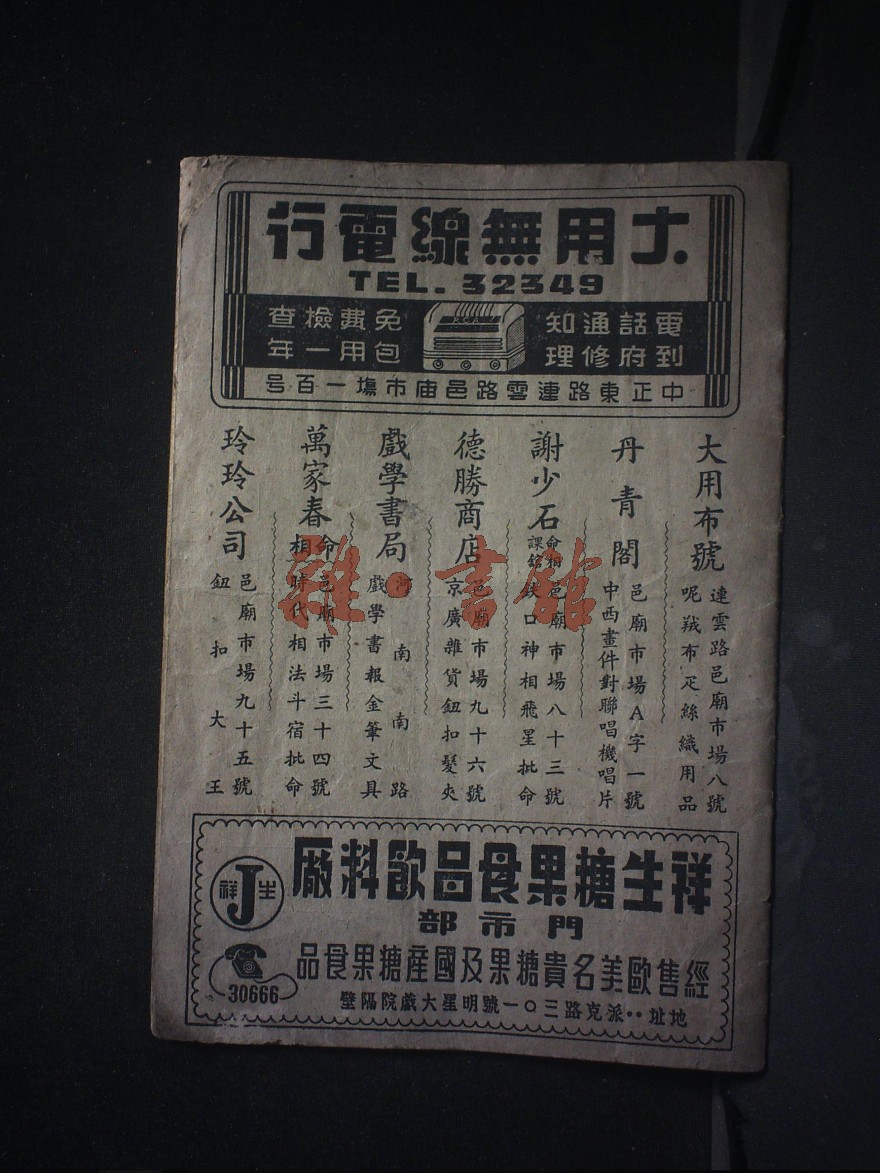 大用無線電行
TEL. 32349
電話通知
到府修理
RCA
免費檢查
包用一年
中正東路連雲路邑庙市塲一百号
大用布號
連雲路邑廟市場八號
呢羢布疋絲織用品
丹青閣
邑廟市場A字一號
中西畫件對聯唱機唱片
謝少石
命相
課舘
邑廟市場八十三號
鉄口神相飛星批命
德勝商店
邑廟市場九十六號
京廣雜貨鈕扣髮夾
戲學書局
河南南路
戲學書報金筆文具
萬家春
命相
邑廟市場三十四號
時代相法斗宿批命
玲玲公司
邑廟市場九十五號
鈕扣大王
雜·書館
祥生糖果食品飲料厰
門市部
祥J生
經售歐美名貴糖果及國產糖果食品
30666
地址··派克路三〇一號明星大戲院隔壁